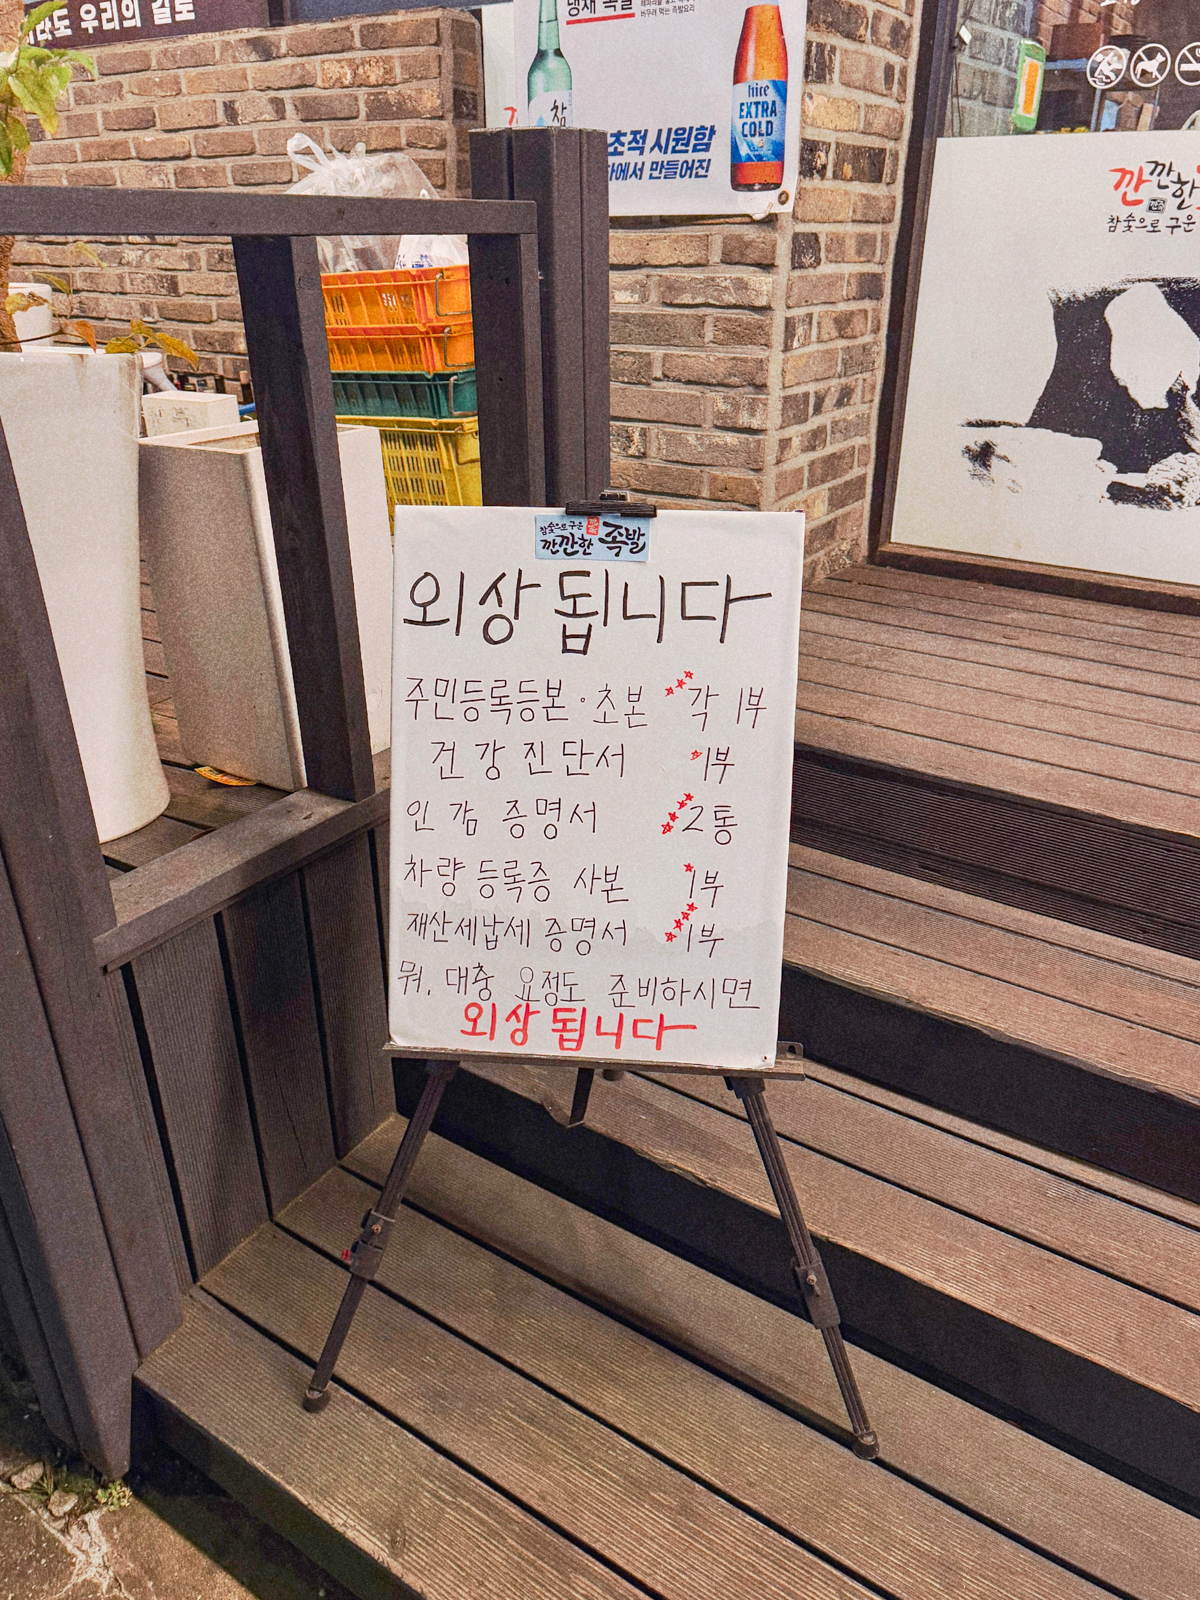 우리의 길로
냉채 족발
참
초적 시원함
하에서 만들어진
hite
EXTRA
COLD
깐깐한
참숯으로 구운
참숯으로 구운
깐깐한 족발
외상 됩니다
주민등록등본·초본 각 1부
건강진단서 1부
인감 증명서 2통
차량 등록증 사본 1부
재산세납세 증명서 1부
뭐. 대충 요정도 준비하시면
외상 됩니다